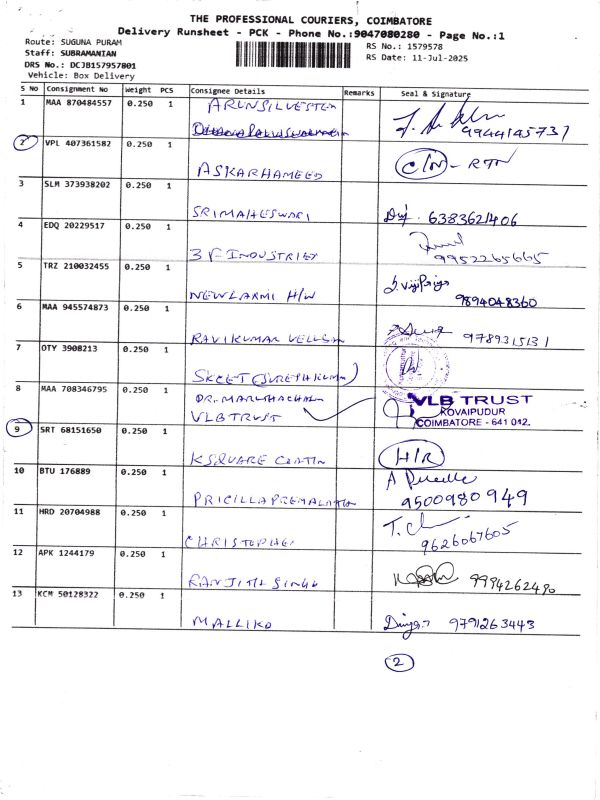 THE PROFESSIONAL COURIERS, COIMBATORE
Delivery Runsheet - PCK - Phone No.:9047080280 - Page No.:1
Route: SUGUNA PURAM
RS No.: 1579578
Staff: SUBRAMANIAN
RS Date: 11-Jul-2025
DRS No.: DCJB157957801
Vehicle: Box Delivery
S No Consignment No Weight PCS Consignee Details Remarks Seal & Signature
1 MAA 870484557 0.250 1 ARUNSILVESTER
9944145731
2 VPL 407361582 0.250 1 ASKARHAMEED C/N - RTN
3 SLM 373938202 0.250 1 SRIMAHESWARI 6383621406
4 EDQ 20229517 0.250 1 3F INDUSTRIES 9952265665
5 TRZ 210032455 0.250 1 NEWLAXMI H/W 9894048360
6 MAA 945574873 0.250 1 RAVIKUMAR 9789315131
7 OTY 3908213 0.250 1 SKCET
8 MAA 708346795 0.250 1 DR.MARUTHACHALA
VLBTRUST
VLB TRUST
KOVAIPUDUR
COIMBATORE - 641 042.
9 SRT 68151650 0.250 1 KSQUARE H/R
10 BTU 176889 0.250 1 PRICILLAPREMALATHA 9500980949
11 HRD 20704988 0.250 1 CHRISTOPHER 9626067605
12 APK 1244179 0.250 1 RANJITH SINGH 9994262490
13 KCM 50128322 0.250 1 MALLIKA 9791263443
2